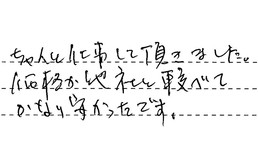 ちゃんと仕事して頂きました。
価格が他社と比較べて
かなり安かったです。